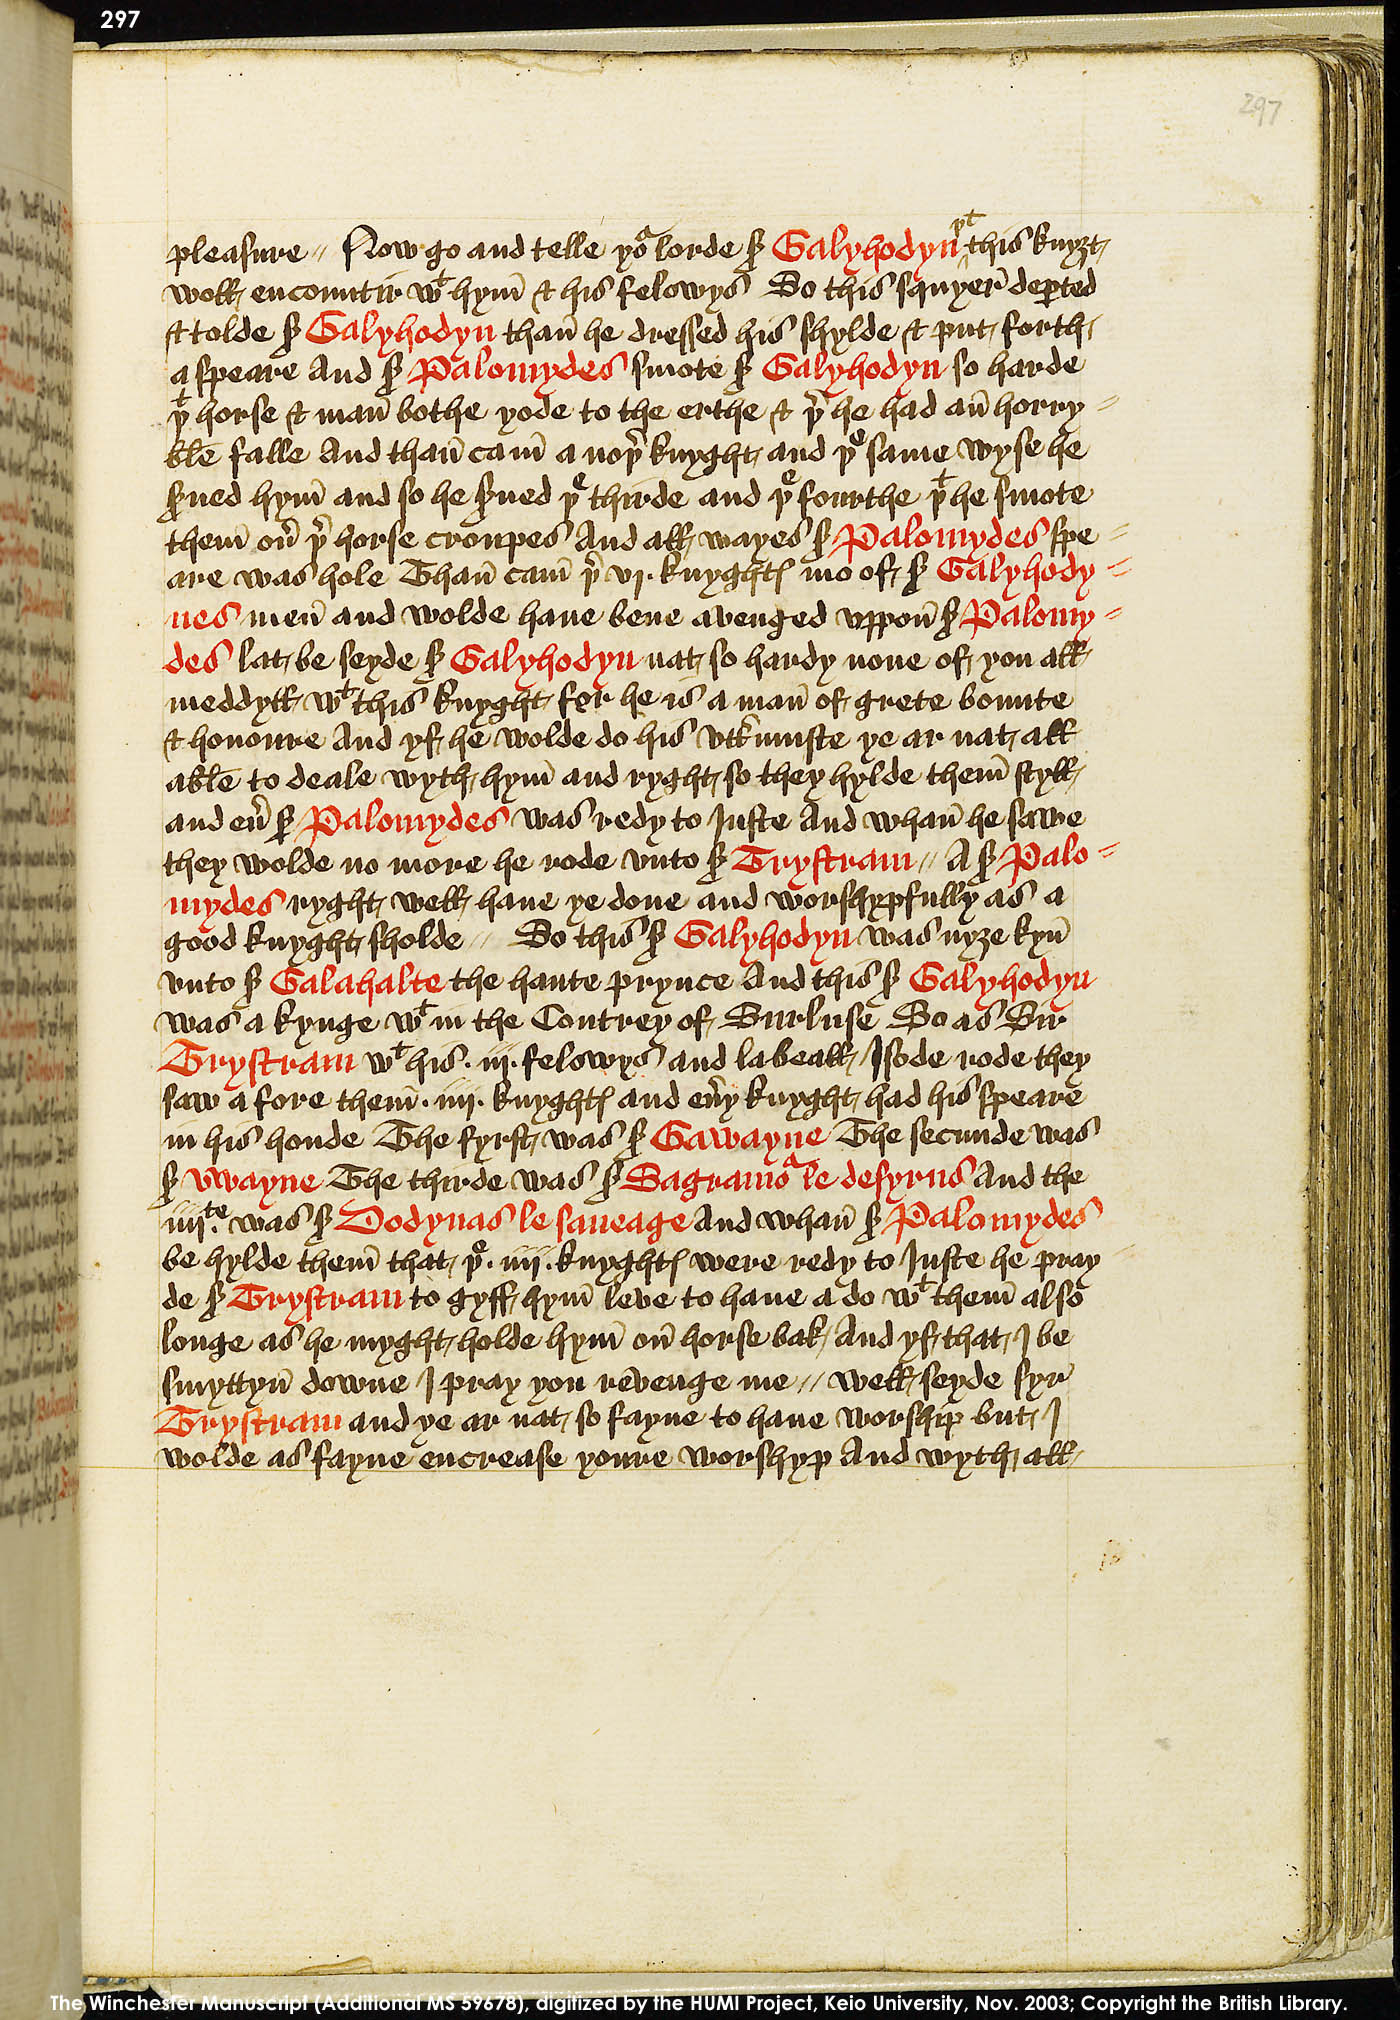 297
297
pleasure // Now go and telle yoᵃ lorde sꝭ Galyhodyn þᵗ this knyȝt
woll encountir wᵗ hym̄ & his felowys So this squyer̄ deꝑted
& tolde sꝭ Galyhodyn than̄ he dressed his shylde & put forth
a speare And sꝭ Palomydes smote sꝭ Galyhodyn so harde
þᵗ horse & man̄ bothe yode to the erthe & þ̉ he had an̄ horry //
blē falle And than̄ cam̄ a noþ̉ knyght and þᵉ same wyse he
ẜued hym̄ and so he ẜued þᵉ thirde and þᵉ fourthe þᵗ he smote
them̄ oủ þ̉ horse croupes And all wayes sꝭ Palomydes spe //
are was hole Than̄ cam̄ þ̉ vj. knyghtꝭ mo of sꝭ Galyhody //
nes men̄ and wolde haue bene avenged vppon̄ sꝭ Palomy //
des lat be seyde sꝭ Galyhodyn nat so hardy none of you all
meddyll wᵗ this knyght for he is a man̄ of grete bounte
& honoure And yf he wolde do his vtt̉muste ye ar nat all
ablē to deale wyth hym̄ and ryght so they hylde them̄ styll
and eủ sꝭ Palomydes was redy to Juste And whan̄ he sawe
they wolde no more he rode vnto sꝭ Trystram // A sꝭ Palo //
mydes ryght well haue ye done and worshypfully as a
good knyght sholde // So this sꝭ Galyhodyn was nyȝe kyn̄
vnto sꝭ Galahalte the haute prynce And this sꝭ Galyhodyn
was a kynge wᵗ in the Contrey of Surluse So as Sir
Trystram wᵗ his .iij. felowys and labeall Isode rode they
saw a fore them̄ .iiij. knyghtꝭ and eủy knyght had his speare
in his honde The fyrst was sꝭ Gawayne The secunde was
sꝭ vwayne The thirde was sꝭ Sagramoᵃ le desyrus And the
iiijᵗᵉ. was sꝭ Dodynas le saueage And whan̄ sꝭ Palomydes
be hylde them̄ that þᵉ .iiij. knyghtꝭ were redy to Juste he pray
de sꝭ Trystram to gyff hym̄ leve to haue a do wᵗ them̄ also
longe as he myght holde hym̄ on̄ horse bak And yf that I be
smyttyn̄ downe I pray you revenge me // well seyde syr
Trystram and ye ar nat so fayne to haue worship but I
wolde as fayne encrease youre worshyp And wyth all
The Winchester Manuscript (Additional MS 59678), digitized by the HUMI Project, Keio University, Nov. 2003; Copyright the British Library.